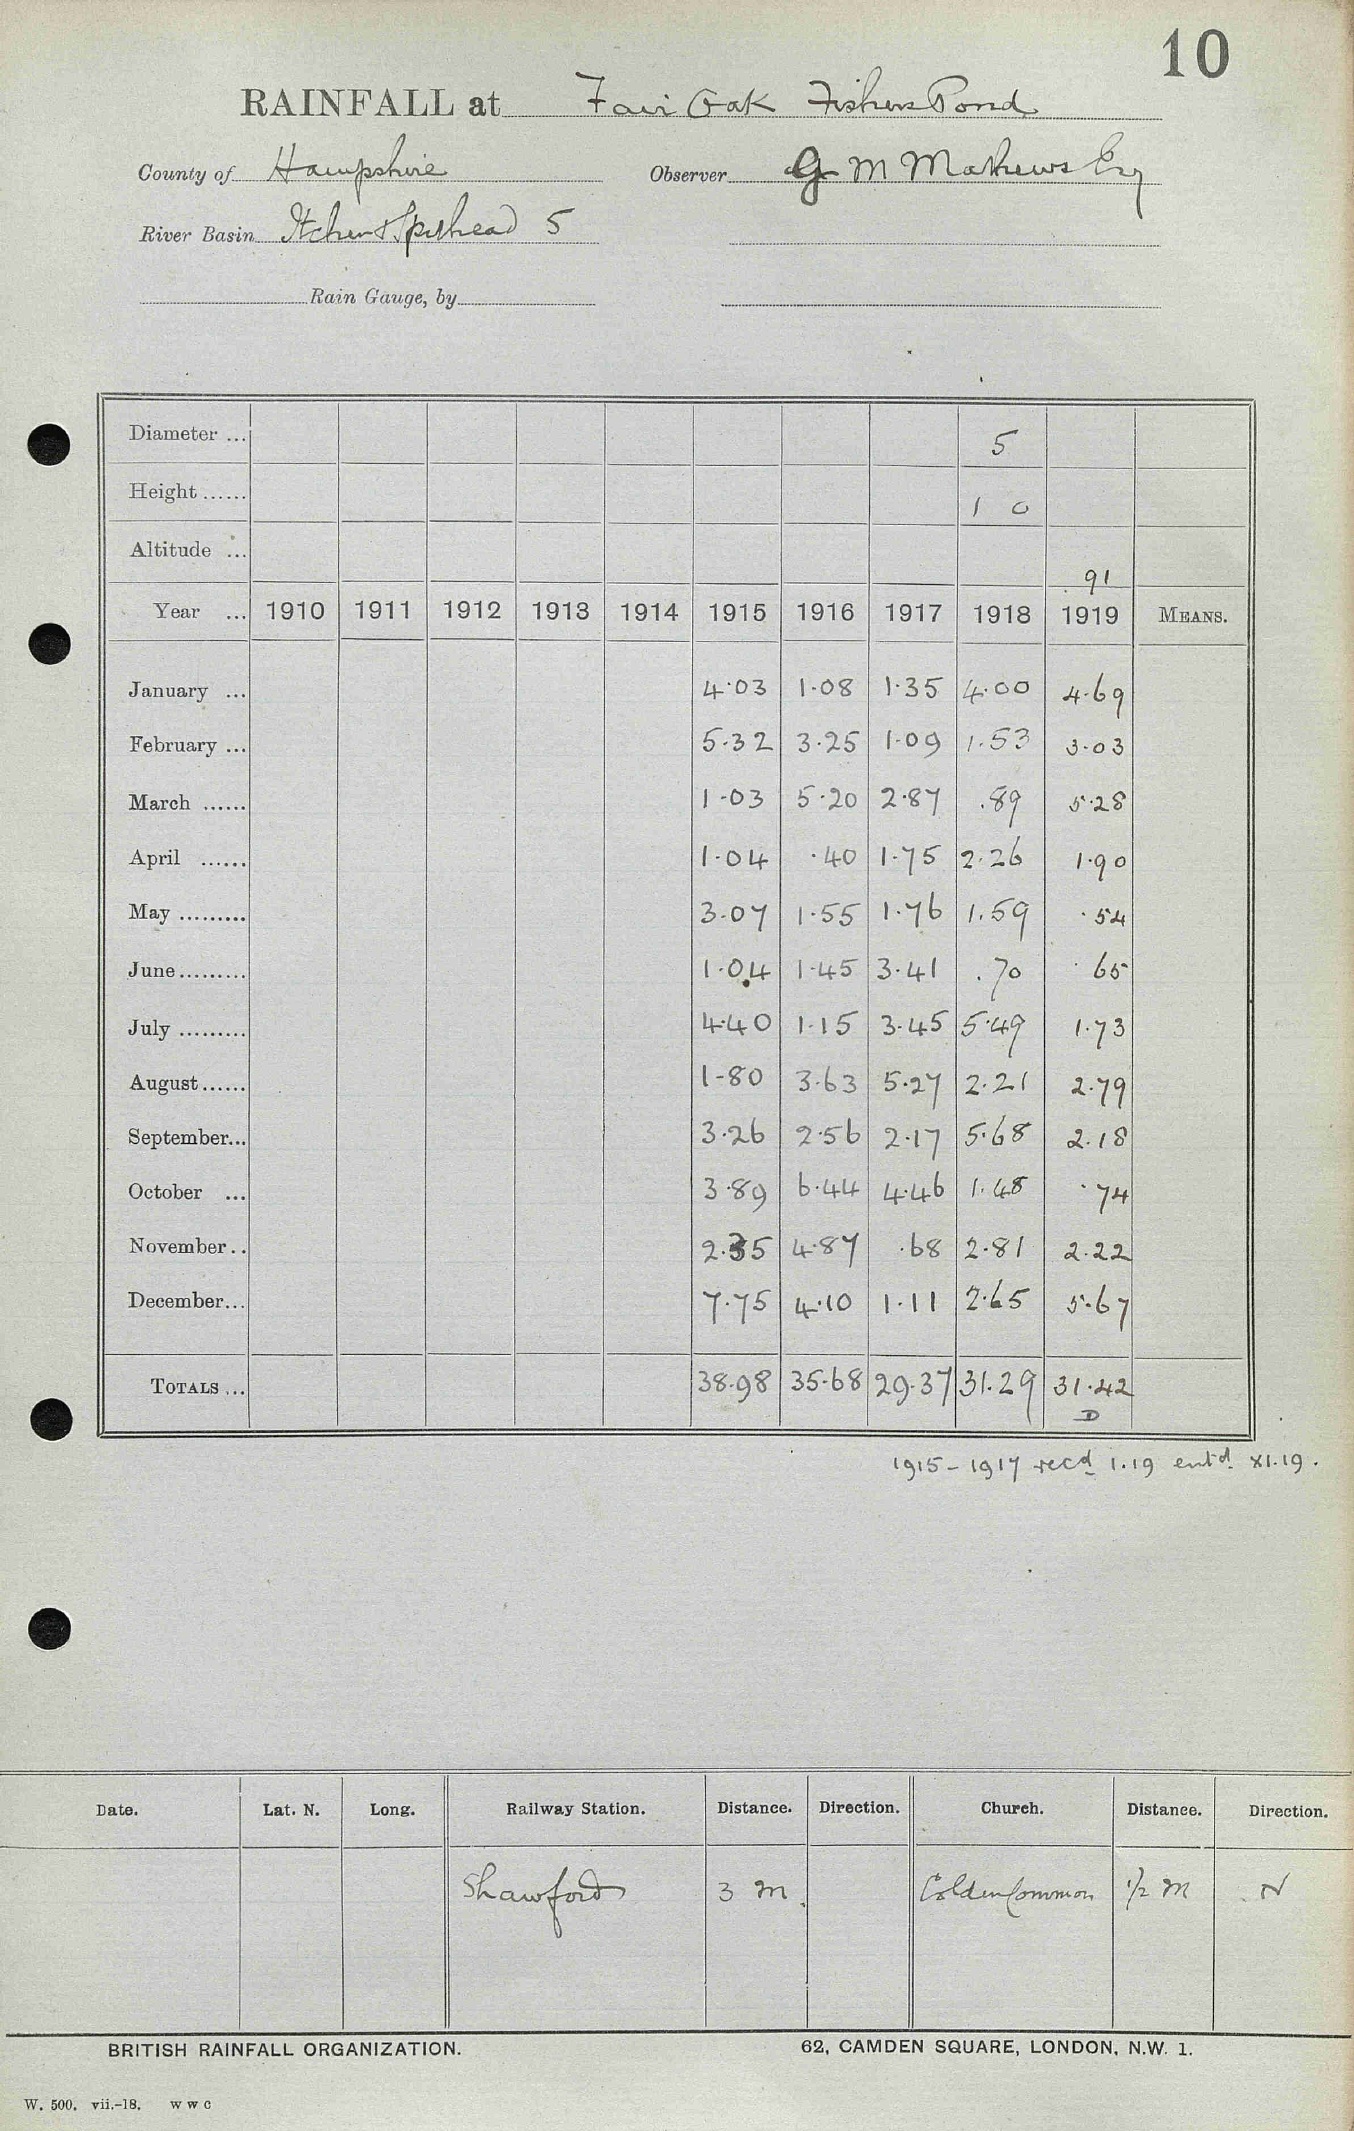 10
RAINFALL at Fair Oak Fishers Pond
County of Hampshire Observer G M Mathews Esq
River Basin Itchen & Spithead 5
Rain Gauge, by
Diameter ... 5
Height ...... 1 0
Altitude ... 91
Year ... 1910 1911 1912 1913 1914 1915 1916 1917 1918 1919 MEANS.
January ... 4.03 1.08 1.35 4.00 4.69
February ... 5.32 3.25 1.09 1.53 3.03
March ...... 1.03 5.20 2.87 .89 5.28
April ...... 1.04 .40 1.75 2.26 1.90
May ......... 3.07 1.55 1.76 1.59 .54
June ......... 1.04 1.45 3.41 .70 .65
July ......... 4.40 1.15 3.45 5.49 1.73
August ...... 1.80 3.63 5.27 2.21 2.79
September... 3.26 2.56 2.17 5.68 2.18
October ... 3.89 6.44 4.46 1.48 .74
November .. 2.35 4.87 .68 2.81 2.22
December... 7.75 4.10 1.11 2.65 5.67
TOTALS ... 38.98 35.68 29.37 31.29 31.42
D
1915-1917 recd 1.19 entd XI.19.
Date. Lat. N. Long. Railway Station. Distance. Direction. Church. Distance. Direction.
Shawford 3 M. Colden Common 1/2 M N
BRITISH RAINFALL ORGANIZATION. 62, CAMDEN SQUARE, LONDON, N.W. 1.
W. 500. vii.-18. W W C